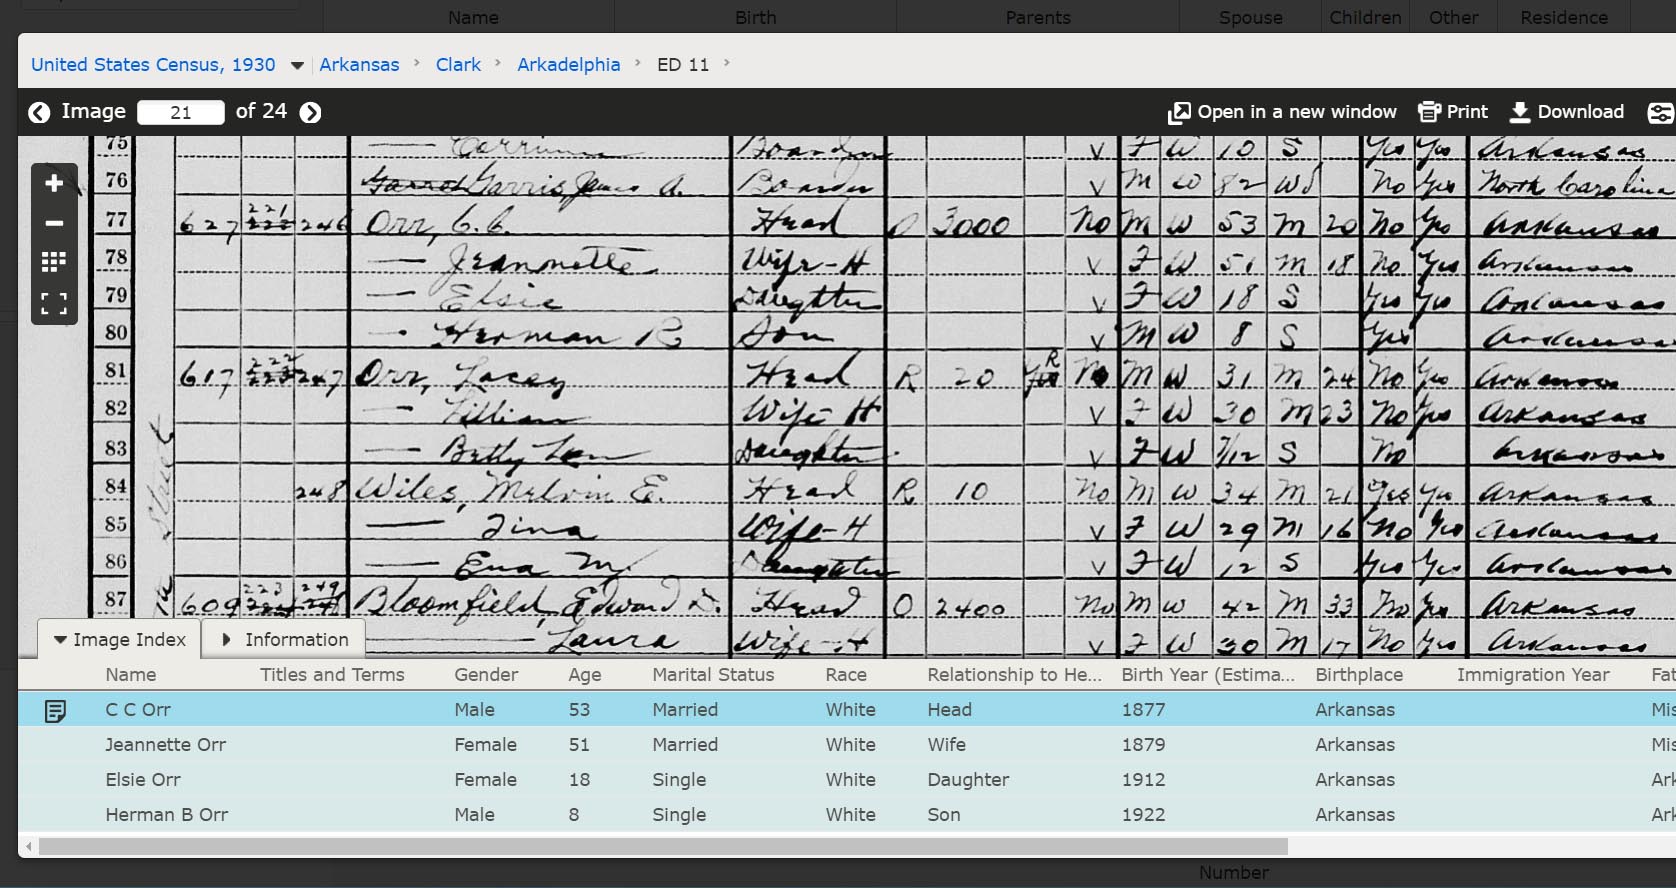 Name Birth Parents Spouse Children Other Residence
United States Census, 1930 Arkansas › Clark › Arkadelphia › ED 11 ›
Image 21 of 24 Open in a new window Print Download
75 — Boarder V F W 10 S Yes Yes Arkansas
76 Garris, James A. Boarder V M W 82 Wd No Yes North Carolina
77 627 221 246 Orr, C. C. Head O 3000 No M W 53 M 20 No Yes Arkansas
78 — Jeannette Wife-H V F W 51 M 18 No Yes Arkansas
79 — Elsie Daughter V F W 18 S Yes Yes Arkansas
80 — Herman B Son V M W 8 S Yes Arkansas
81 617 222 247 Orr, Lacey Head R 20 R No M W 31 M 24 No Yes Arkansas
82 — Lillian Wife-H V F W 30 M 23 No Yes Arkansas
83 — Betty Daughter V F W 7/12 S No Arkansas
84 248 Wiles, Melvin E. Head R 10 No M W 34 M 21 Yes Yes Arkansas
85 — Tina Wife-H V F W 29 M 16 No Yes Arkansas
86 — M. Daughter V F W 12 S Yes Yes Arkansas
87 609 223 249 Bloomfield, Edward D. Head O 2400 No M W 42 M 33 No Yes Arkansas
— Laura Wife-H V F W 30 M 17 No Yes Arkansas
Street
Image Index Information
Name Titles and Terms Gender Age Marital Status Race Relationship to He... Birth Year (Estima... Birthplace Immigration Year Fat
C C Orr Male 53 Married White Head 1877 Arkansas Mis
Jeannette Orr Female 51 Married White Wife 1879 Arkansas Mis
Elsie Orr Female 18 Single White Daughter 1912 Arkansas Ark
Herman B Orr Male 8 Single White Son 1922 Arkansas Ark
Number